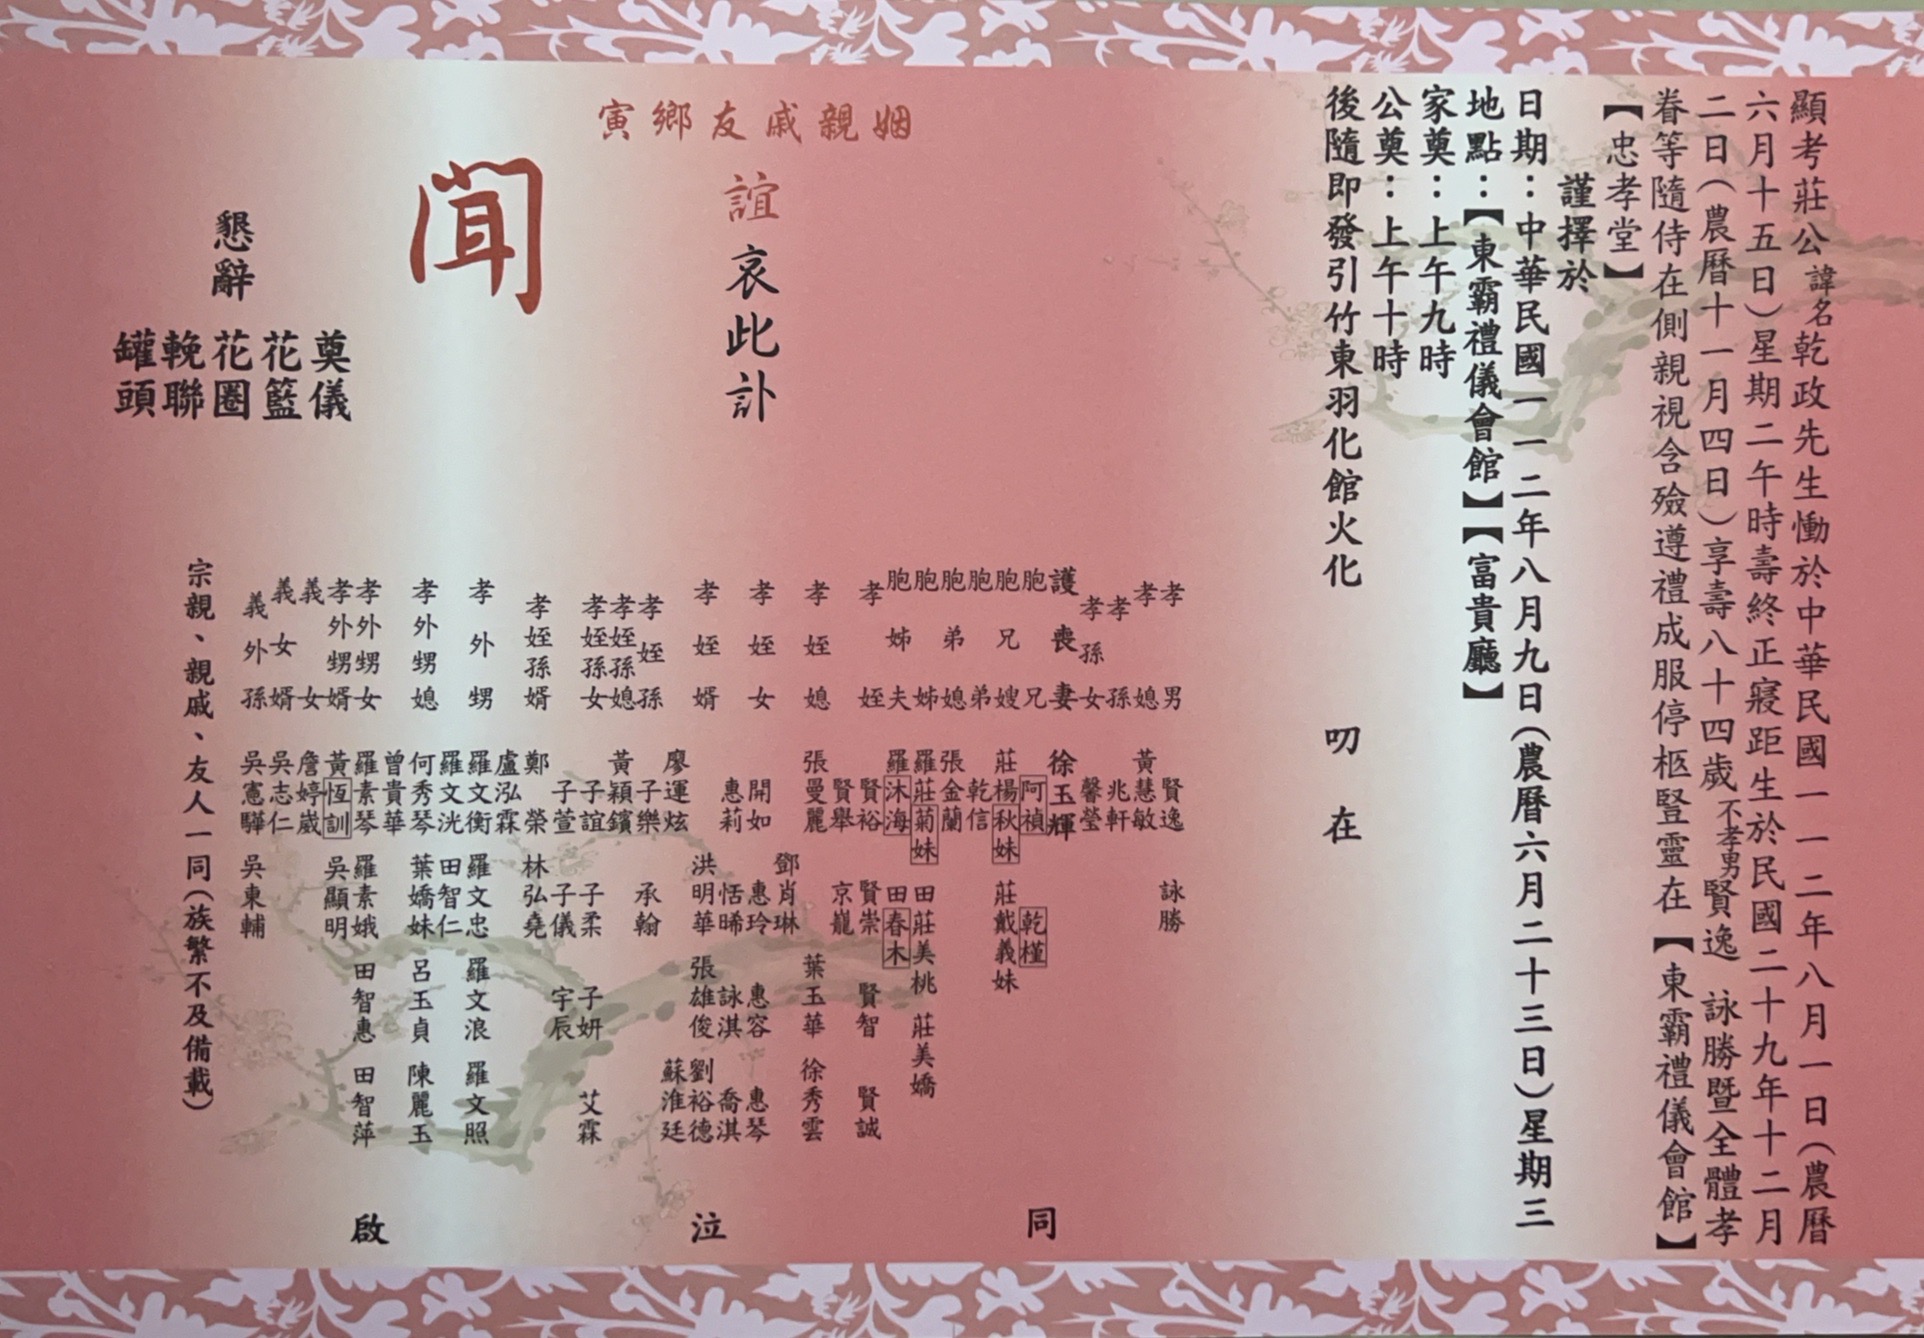 顯考莊公諱名乾政先生慟於中華民國一一二年八月一日(農曆
六月十五日)星期二午時壽終正寢距生於民國二十九年十二月
二日(農曆十一月四日)享壽八十四歲不孝男賢逸 詠勝暨全體孝
眷等隨侍在側親視含殮遵禮成服停柩豎靈在【東霸禮儀會館】
【忠孝堂】
謹擇於
日期:中華民國一一二年八月九日(農曆六月二十三日)星期三
地點:【東霸禮儀會館】【富貴廳】
家奠:上午九時
公奠:上午十時
後隨即發引竹東羽化館火化 叨在
姻親戚友鄉寅
誼 哀此訃
聞
懇辭
奠儀
花籃
花圈
輓聯
罐頭
孝男 賢逸 詠勝
孝媳 黃慧敏
孝孫 兆軒
孝孫女 馨瑩
護喪妻 徐玉輝
胞兄 阿禎 乾槿
胞兄嫂 莊楊秋妹 莊戴義妹
胞弟 乾信
胞弟媳 張金蘭
胞姊 羅莊菊妹 田莊美桃 莊美嬌
胞姊夫 羅沐海 田春木
孝姪 賢裕 賢崇 賢智 賢誠
賢舉 京巃
孝姪媳 張曼麗 鄧肖琳 葉玉華 徐秀雲
孝姪女 開如 惠玲 惠容 惠琴
惠莉 恬晞 詠淇 喬淇
孝姪婿 廖運炫 洪明華 張雄俊 劉裕德
蘇淮廷
孝姪孫 子樂 承翰
孝姪孫媳 黃穎鑌
孝姪孫女 子誼 子柔 子妍 艾霖
子萱 子儀 宇辰
孝姪孫婿 鄭榮 林弘堯
盧泓霖
孝外甥 羅文衡 羅文忠 羅文浪 羅文照
羅文洸 田智仁
孝外甥媳 何秀琴 葉嬌妹 呂玉貞 陳麗玉
曾貴華
孝外甥女 羅素琴 羅素娥 田智惠 田智萍
孝外甥婿 黃恆訓 吳顯明
義女 詹婷崴
義女婿 吳志仁
義外孫 吳憲驊 吳東輔
宗親、親戚、友人一同(族繁不及備載)
同 泣 啟